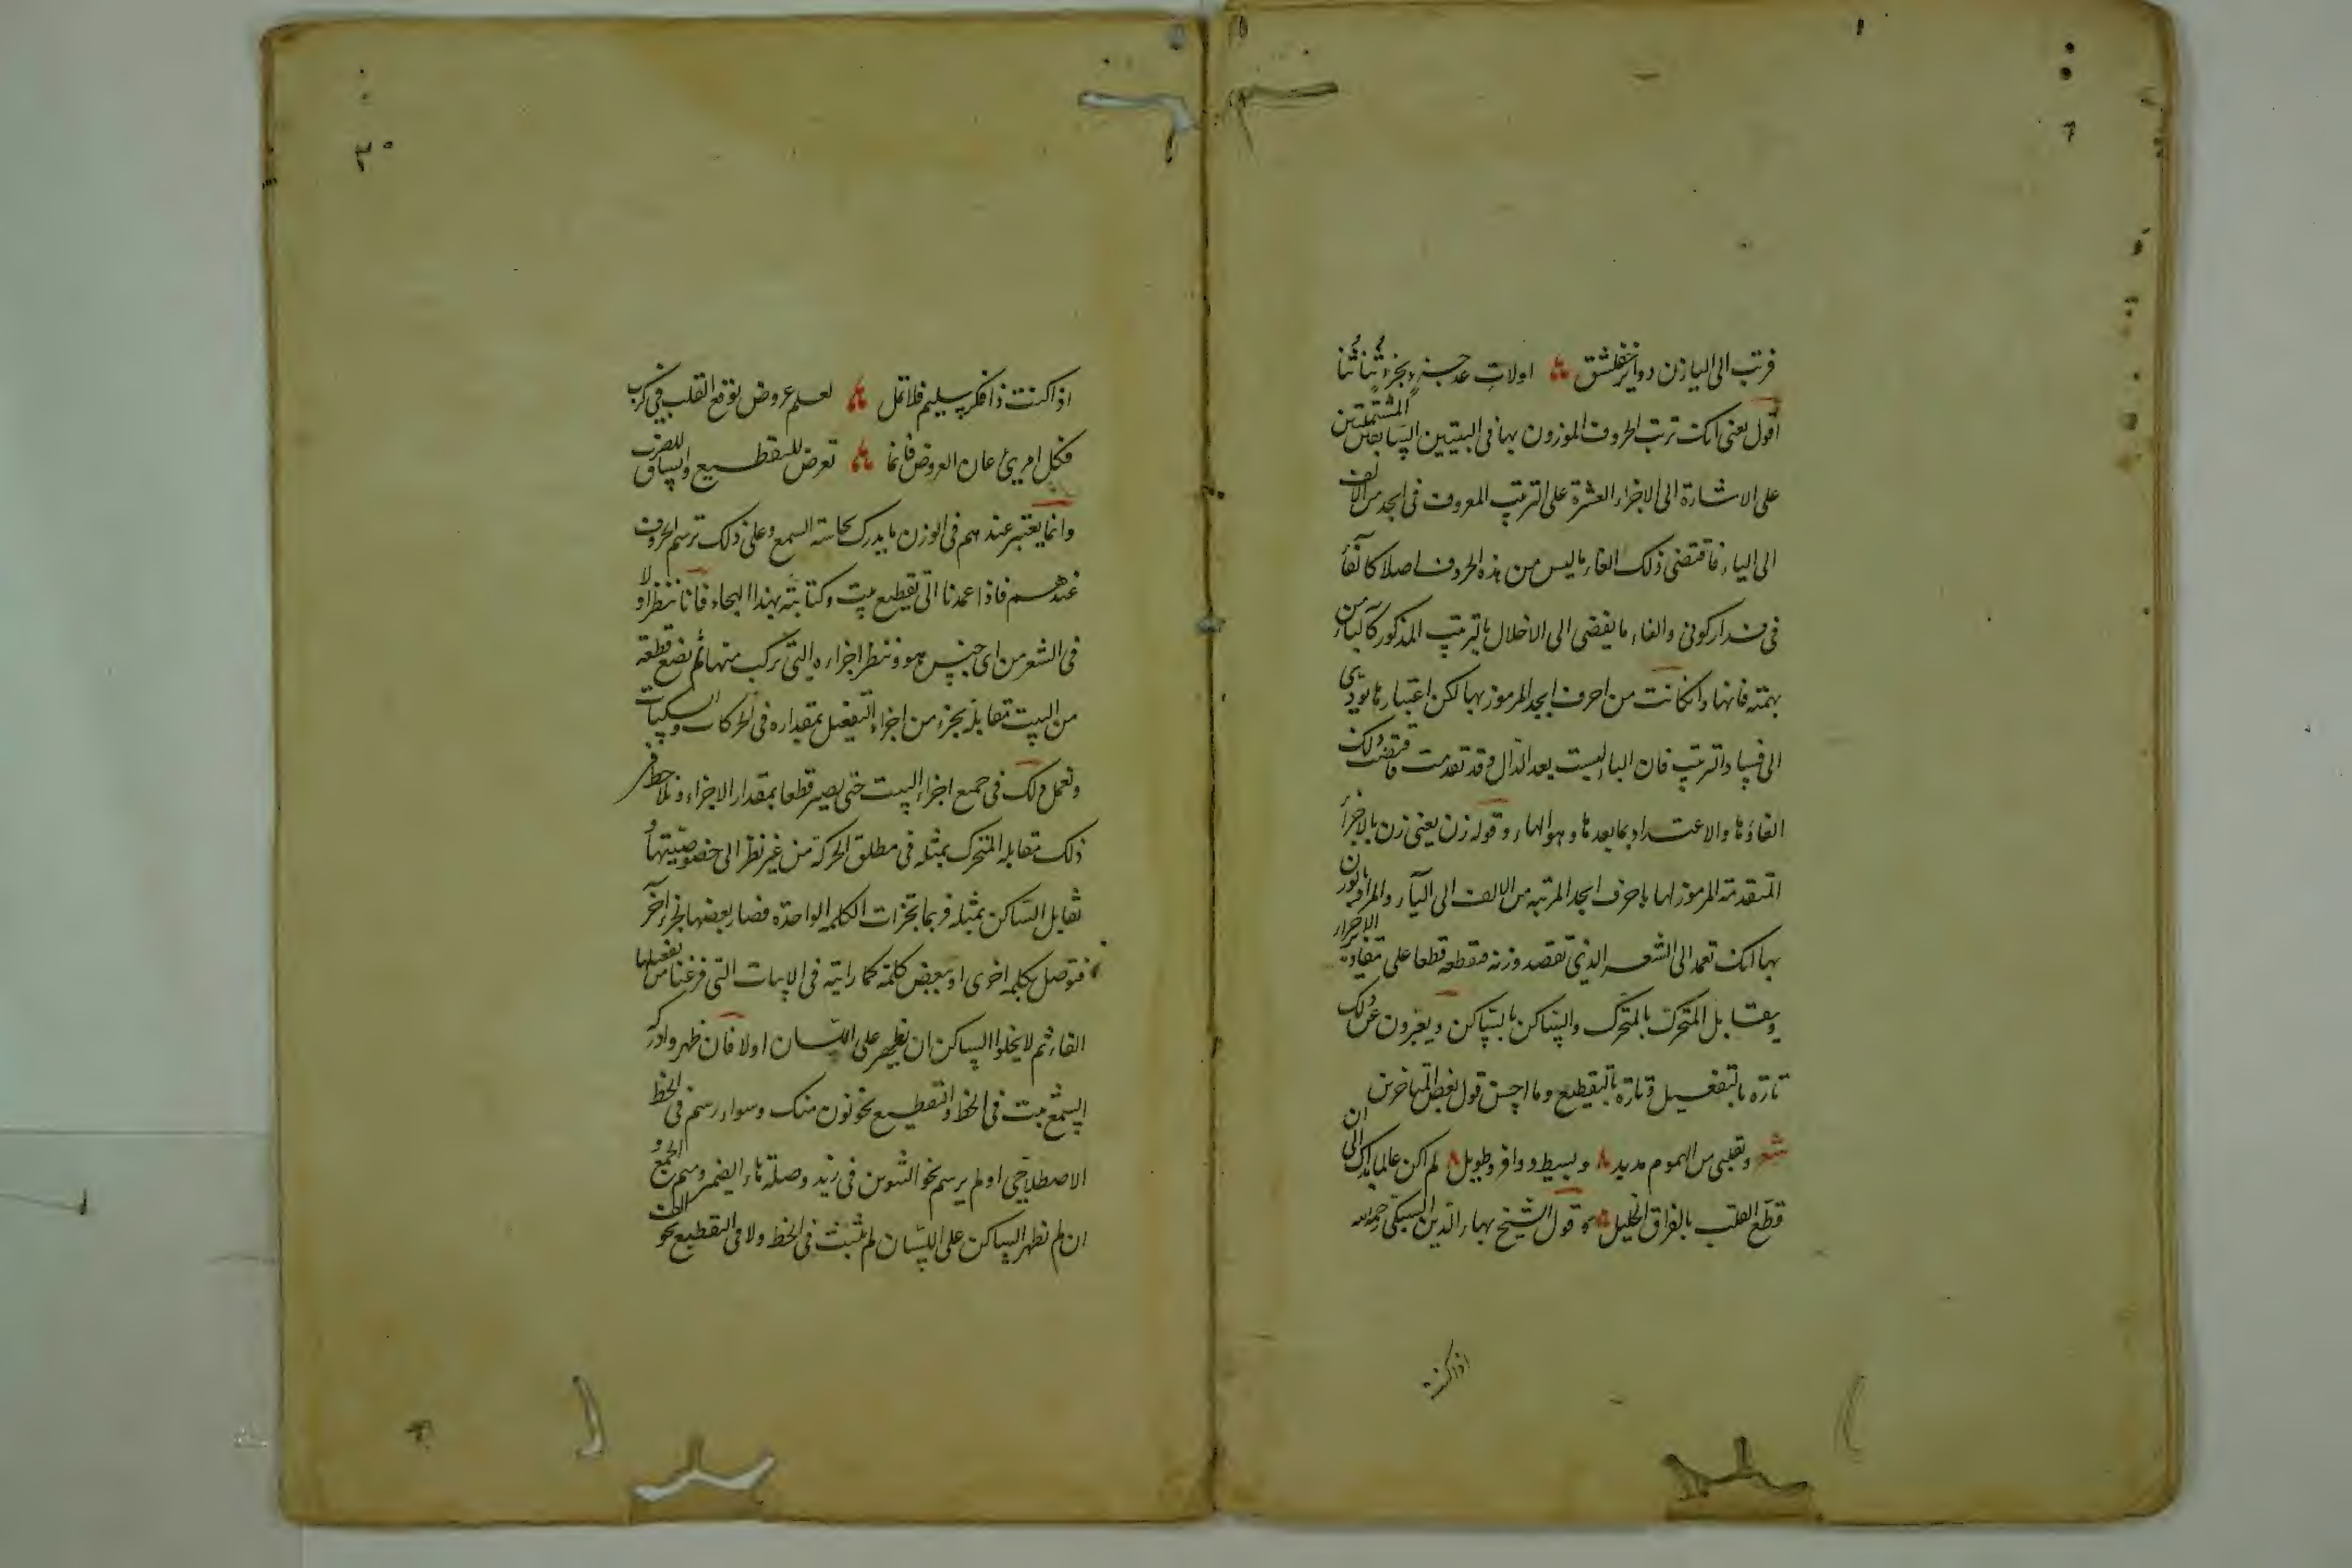 فرتب الى اليا زن دوائر خفلشق ۞ اولات عد جزء بجزء ثنا ثنا
اقول يعنى انك ترتب الحروف الموزون بها فى البيتين السابقين المشتملتين
على الاشارة الى الاجزاء العشرة على الترتيب المعروف فى ابجد من الالف
الى الياء فاقتضى ذلك الغاء ما ليس من هذه الحروف اصلا كالفاء
فى والغاء ما يفضى الى الاخلال بالترتيب المذكور كالباء من
بهمته فانها وان كانت من احرف ابجد المرموز بها لكن اعتبارها يودى
الى فساد الترتيب فان الباء ليست بعد الدال وقد تقدمت فاقتضى ذلك
الغاؤها والاعتداد بما بعدها وهو الهاء وقوله زن يعنى زن بالاجزاء
المتقدمة المرموز لها باحرف ابجد المرتبه من الالف الى الياء والمراد بالوزن
بها انك تعمد الى الشعر الذى تقصد وزنه فتقطعه قطعا على مقادير الاجزاء
ويقابل المتحرك بالمتحرك والساكن بالساكن ويعبرون عن ذلك
تارة بالتفعيل وتارة بالتقطيع وما احسن قول بعض المتاخرين
شعر وبقلبى من الهموم مديد ۞ وبسيط ووافر وطويل ۞ لم اكن عالما بذاك الى ان
قطع القلب بالفراق الخليل ۞ وقول الشيخ بهاء الدين السبكى رحمه الله
اذا كنت
اذا كنت ذا فكر سليم فلا تمل ۞ لعلم عروض يوقع القلب فى كرب
فكل امرئ عان العروض فانما ۞ تعرض للتقطيع وانساق للضرب
وانما يعتبر عندهم فى الوزن ما يدرك بحاسة السمع وعلى ذلك ترسم الحروف
عندهم فاذا عمدنا الى تقطيع بيت وكتابته بهذا الهجاء فانا ننظر اولا
فى الشعر من اى جنس هو وننظر اجزاءه التى تركب منها ثم نضع قطعة
من البيت مقابلة بجزء من اجزاء التفعيل بمقداره فى الحركات والسكنات
ونعمل ذلك فى جميع اجزاء البيت حتى يصير قطعا بمقدار الاجزاء ونلاحظ فى
ذلك مقابله المتحرك بمثله فى مطلق الحركة من غير نظر الى خصوصيتها و
تقابل الساكن بمثله فربما تجزات الكلمه الواحدة فصار بعضها بجزء آخر
فتوصل بكلمه اخرى او ببعض كلمة كما رايته فى الابيات التى فرغنا من تفعيلها
انفا ثم لا يخلوا الساكن ان يظهر على اللسان اولا فان ظهر وادركه
السمع ثبت فى الخط والتقطيع نحو نون منك وسواء رسم فى الخط
الاصطلاحى او لم يرسم نحو التنوين فى زيد وصلة هاء الضمير وميم الجمع و
ان لم يظهر الساكن على اللسان لم يثبت فى الخط ولا فى التقطيع نحو الف